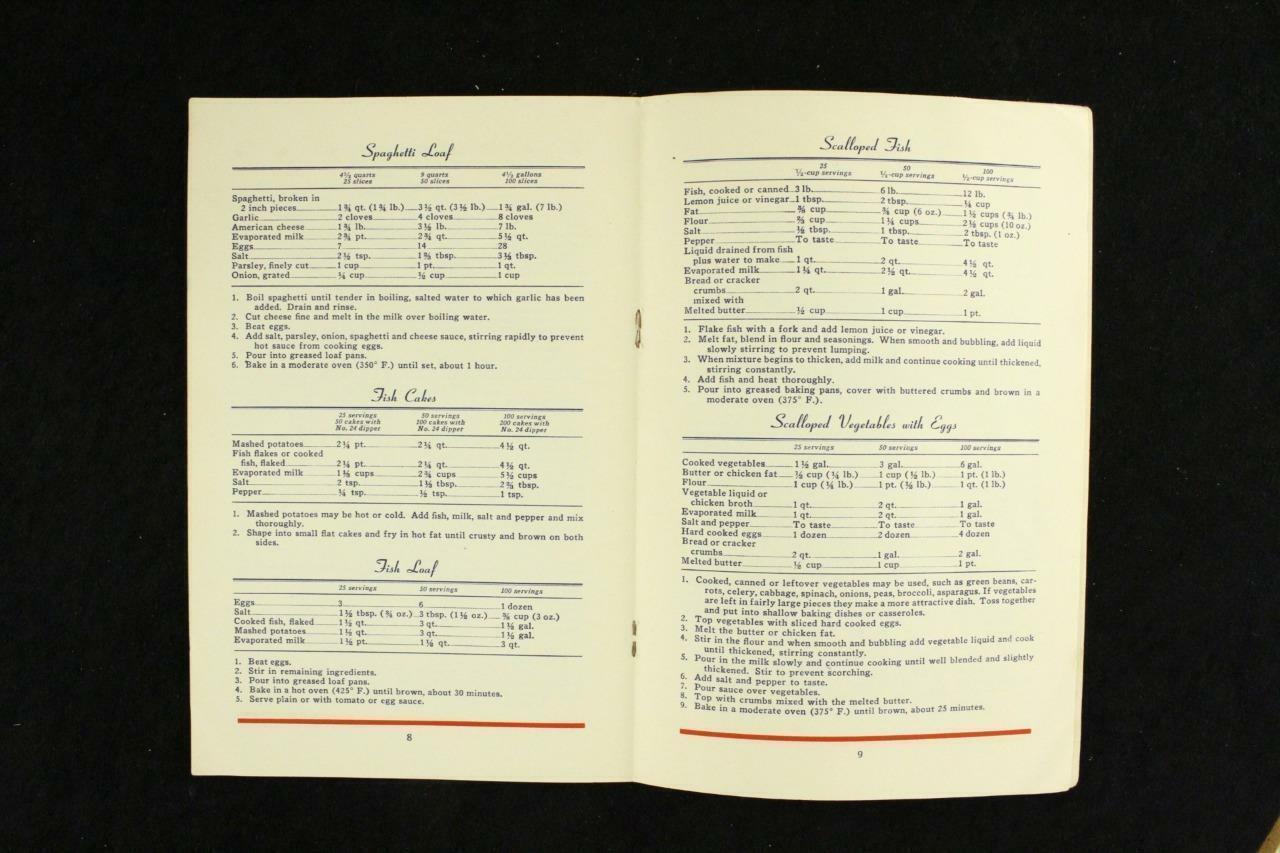 Spaghetti Loaf
4½ quarts 9 quarts 4½ gallons
25 slices 50 slices 100 slices
Spaghetti, broken in
2 inch pieces 1¾ qt. (1¾ lb.) 3½ qt. (3½ lb.) 1¾ gal. (7 lb.)
Garlic 2 cloves 4 cloves 8 cloves
American cheese 1¾ lb. 3½ lb. 7 lb.
Evaporated milk 2¾ pt. 2¾ qt. 5½ qt.
Eggs 7 14 28
Salt 2½ tsp. 1⅔ tbsp. 3⅓ tbsp.
Parsley, finely cut 1 cup 1 pt. 1 qt.
Onion, grated ¼ cup ½ cup 1 cup
1. Boil spaghetti until tender in boiling, salted water to which garlic has been
added. Drain and rinse.
2. Cut cheese fine and melt in the milk over boiling water.
3. Beat eggs.
4. Add salt, parsley, onion, spaghetti and cheese sauce, stirring rapidly to prevent
hot sauce from cooking eggs.
5. Pour into greased loaf pans.
6. Bake in a moderate oven (350° F.) until set, about 1 hour.
Fish Cakes
25 servings 50 servings 100 servings
50 cakes with 100 cakes with 200 cakes with
No. 24 dipper No. 24 dipper No. 24 dipper
Mashed potatoes 2¼ pt. 2¼ qt. 4½ qt.
Fish flakes or cooked
fish, flaked 2¼ pt. 2¼ qt. 4½ qt.
Evaporated milk 1⅓ cups 2¾ cups 5½ cups
Salt 2 tsp. 1⅓ tbsp. 2⅔ tbsp.
Pepper ¼ tsp. ½ tsp. 1 tsp.
1. Mashed potatoes may be hot or cold. Add fish, milk, salt and pepper and mix
thoroughly.
2. Shape into small flat cakes and fry in hot fat until crusty and brown on both
sides.
Fish Loaf
25 servings 50 servings 100 servings
Eggs 3 6 1 dozen
Salt 1½ tbsp. (¾ oz.) 3 tbsp. (1½ oz.) ⅜ cup (3 oz.)
Cooked fish, flaked 1½ qt. 3 qt. 1½ gal.
Mashed potatoes 1½ qt. 3 qt. 1½ gal.
Evaporated milk 1½ pt. 1½ qt. 3 qt.
1. Beat eggs.
2. Stir in remaining ingredients.
3. Pour into greased loaf pans.
4. Bake in a hot oven (425° F.) until brown, about 30 minutes.
5. Serve plain or with tomato or egg sauce.
8
Scalloped Fish
25 50 100
½-cup servings ½-cup servings ½-cup servings
Fish, cooked or canned 3 lb. 6 lb. 12 lb.
Lemon juice or vinegar 1 tbsp. 2 tbsp. ¼ cup
Fat ⅜ cup ¾ cup (6 oz.) 1½ cups (¾ lb.)
Flour ⅝ cup 1¼ cups 2½ cups (10 oz.)
Salt ½ tbsp. 1 tbsp. 2 tbsp. (1 oz.)
Pepper To taste To taste To taste
Liquid drained from fish
plus water to make 1 qt. 2 qt. 4½ qt.
Evaporated milk 1¼ qt. 2½ qt. 4½ qt.
Bread or cracker
crumbs 2 qt. 1 gal. 2 gal.
mixed with
Melted butter ½ cup 1 cup 1 pt.
1. Flake fish with a fork and add lemon juice or vinegar.
2. Melt fat, blend in flour and seasonings. When smooth and bubbling, add liquid
slowly stirring to prevent lumping.
3. When mixture begins to thicken, add milk and continue cooking until thickened,
stirring constantly.
4. Add fish and heat thoroughly.
5. Pour into greased baking pans, cover with buttered crumbs and brown in a
moderate oven (375° F.).
Scalloped Vegetables with Eggs
25 servings 50 servings 100 servings
Cooked vegetables 1½ gal. 3 gal. 6 gal.
Butter or chicken fat ½ cup (¼ lb.) 1 cup (½ lb.) 1 pt. (1 lb.)
Flour 1 cup (¼ lb.) 1 pt. (½ lb.) 1 qt. (1 lb.)
Vegetable liquid or
chicken broth 1 qt. 2 qt. 1 gal.
Evaporated milk 1 qt. 2 qt. 1 gal.
Salt and pepper To taste To taste To taste
Hard cooked eggs 1 dozen 2 dozen 4 dozen
Bread or cracker
crumbs 2 qt. 1 gal. 2 gal.
Melted butter ½ cup 1 cup 1 pt.
1. Cooked, canned or leftover vegetables may be used, such as green beans, car-
rots, celery, cabbage, spinach, onions, peas, broccoli, asparagus. If vegetables
are left in fairly large pieces they make a more attractive dish. Toss together
and put into shallow baking dishes or casseroles.
2. Top vegetables with sliced hard cooked eggs.
3. Melt the butter or chicken fat.
4. Stir in the flour and when smooth and bubbling add vegetable liquid and cook
until thickened, stirring constantly.
5. Pour in the milk slowly and continue cooking until well blended and slightly
thickened. Stir to prevent scorching.
6. Add salt and pepper to taste.
7. Pour sauce over vegetables.
8. Top with crumbs mixed with the melted butter.
9. Bake in a moderate oven (375° F.) until brown, about 25 minutes.
9